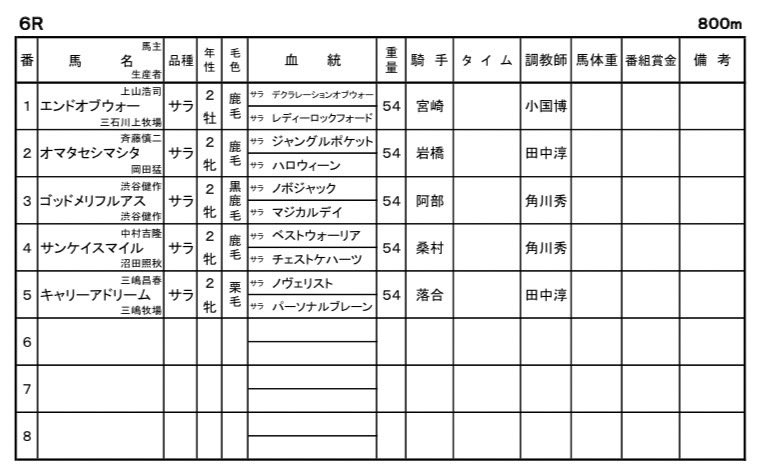 6R 800m
番 馬名 馬主 生産者 品種 年性 毛色 血統 重量 騎手 タイム 調教師 馬体重 番組賞金 備考
上山浩司
1 エンドオブウォー サラ 2牡 鹿毛 サラ デクラレーションオブウォー 54 宮崎 小国博
三石川上牧場 サラ レディーロックフォード
斉藤慎二
2 オマタセシマシタ サラ 2牝 鹿毛 サラ ジャングルポケット 54 岩橋 田中淳
岡田猛 サラ ハロウィーン
渋谷健作
3 ゴッドメリフルアス サラ 2牝 黒鹿毛 サラ ノボジャック 54 阿部 角川秀
渋谷健作 サラ マジカルデイ
中村吉隆
4 サンケイスマイル サラ 2牝 鹿毛 サラ ベストウォーリア 54 桑村 角川秀
沼田照秋 サラ チェストケハーツ
三嶋昌春
5 キャリーアドリーム サラ 2牝 栗毛 サラ ノヴェリスト 54 落合 田中淳
三嶋牧場 サラ パーソナルブレーン
6
7
8